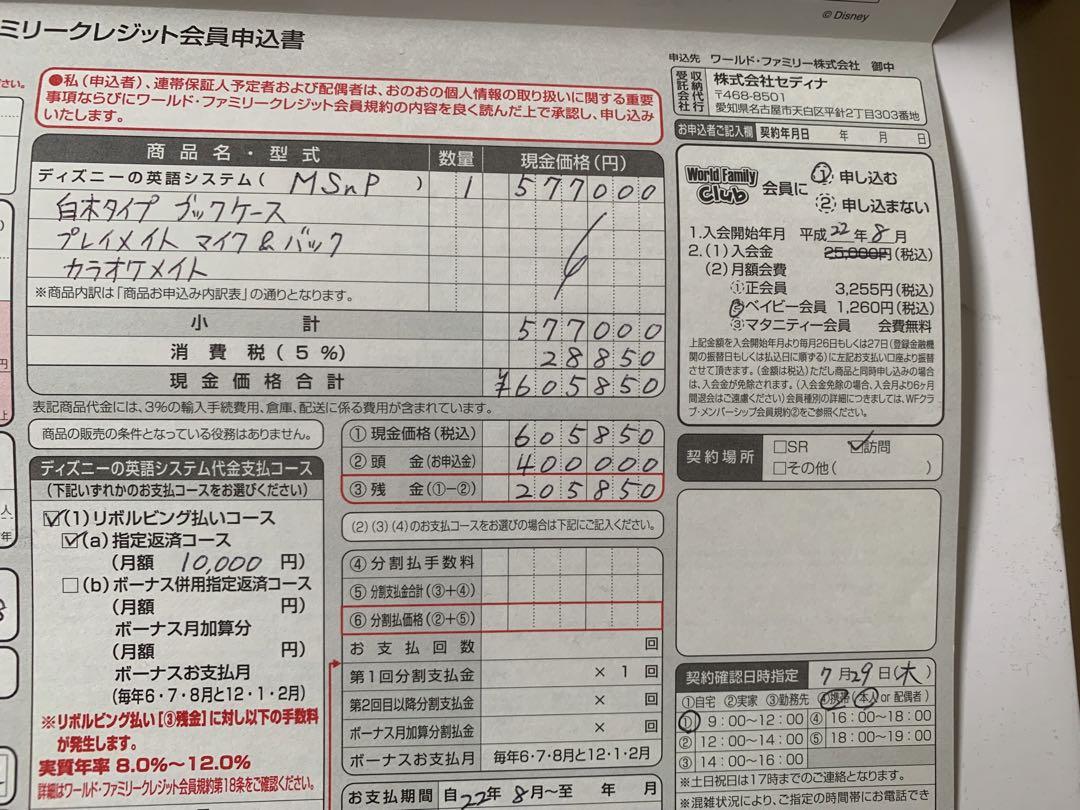 © Disney
ミリークレジット会員申込書
申込先 ワールド・ファミリー株式会社 御中
収納代行
受託会社
株式会社セディナ
〒468-8501
愛知県名古屋市天白区平針2丁目303番地
●私(申込者)、連帯保証人予定者および配偶者は、おのおの個人情報の取り扱いに関する重要
事項ならびにワールド・ファミリークレジット会員規約の内容を良く読んだ上で承認し、申し込み
いたします。
お申込者ご記入欄 契約年月日 年 月 日
商品名・型式 数量 現金価格(円)
ディズニーの英語システム( MSnP ) 1 577000
白木タイプ ブックケース
プレイメイト マイク&バック
カラオケメイト
※商品内訳は「商品お申込み内訳表」の通りとなります。
小計 577000
消費税(5%) 28850
現金価格合計 ¥605850
表記商品代金には、3%の輸入手続費用、倉庫、配送に係る費用が含まれています。
World Family Club 会員に ① 申し込む
② 申し込まない
1.入会開始年月 平成22年8月
2.(1)入会金 25,000円(税込)
(2)月額会費
①正会員 3,255円(税込)
②ベイビー会員 1,260円(税込)
③マタニティー会員 会費無料
上記金額を入会開始年月より毎月26日もしくは27日(登録金融機
関の振替日もしくは払込日に順ずる)に左記お支払い口座より振替
させて頂きます。(金額は税込)ただし商品と同時申し込みの場合
は、入会金が免除されます。(入会金免除の場合、入会月より6ヶ月
間退会はご遠慮ください)会員種別の詳細につきましては、WFクラ
ブ・メンバーシップ会員規約②をご参照ください。
商品の販売の条件となっている役務はありません。
① 現金価格(税込) 605850
② 頭金(お申込金) 400000
③ 残金(①-②) 205850
契約場所 □SR ☑訪問
□その他( )
ディズニーの英語システム代金支払コース
(下記いずれかのお支払コースをお選びください)
☑(1)リボルビング払いコース
☑(a)指定返済コース
(月額 10,000 円)
□(b)ボーナス併用指定返済コース
(月額 円)
ボーナス月加算分
(月額 円)
ボーナスお支払月
(毎年6・7・8月と12・1・2月)
※リボルビング払い[③残金]に対し以下の手数料
が発生します。
実質年率 8.0%~12.0%
詳細はワールド・ファミリークレジット会員規約第18条をご確認ください。
(2)(3)(4)のお支払コースをお選びの場合は下記にご記入ください。
④ 分割払手数料
⑤ 分割支払金合計(③+④)
⑥ 分割払価格(②+⑤)
お支払回数 回
第1回分割支払金 × 1 回
第2回目以降分割支払金 × 回
ボーナス月加算分割金 × 回
ボーナスお支払月 毎年6・7・8月と12・1・2月
お支払期間 自22年8月~至 年 月
契約確認日時指定 7月29日(木)
①自宅 ②実家 ③勤務先 ④携帯(本人 or 配偶者)
① 9:00~12:00 ④ 16:00~18:00
② 12:00~14:00 ⑤ 18:00~19:00
③ 14:00~16:00
※土日祝日は17時までのご連絡となります。
※混雑状況により、ご指定の時間帯にお電話でき